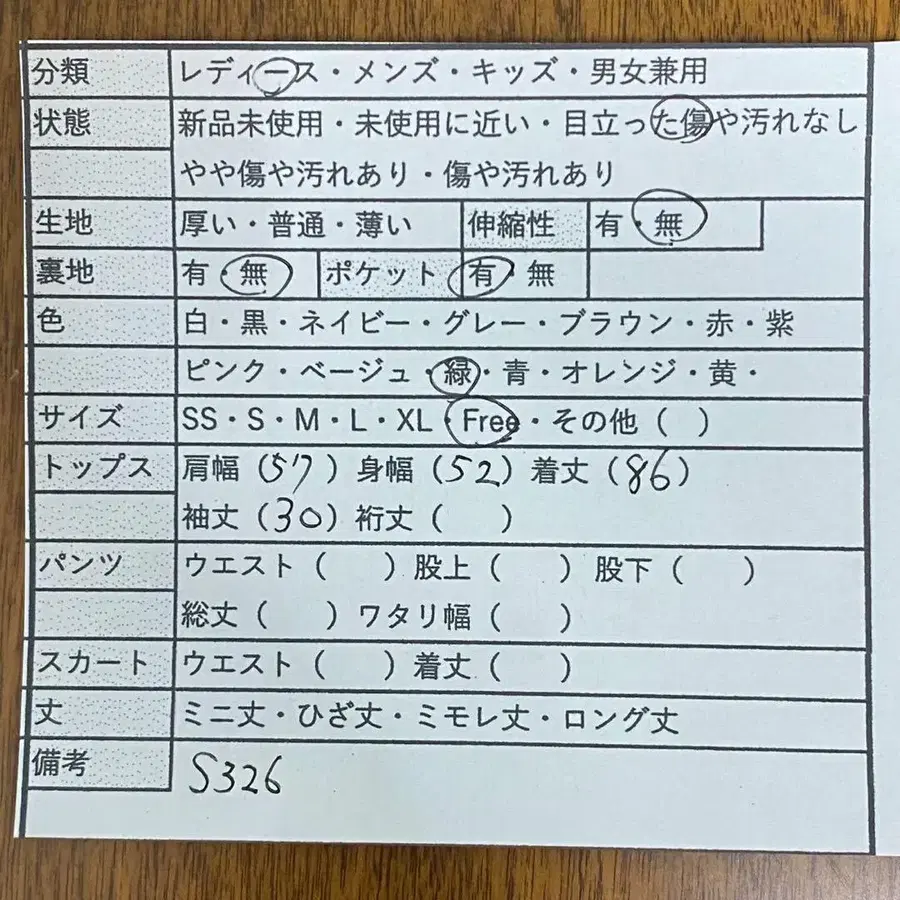 分類 レディース・メンズ・キッズ・男女兼用
状態 新品未使用・未使用に近い・目立った傷や汚れなし
やや傷や汚れあり・傷や汚れあり
生地 厚い・普通・薄い 伸縮性 有・無
裏地 有・無 ポケット 有・無
色 白・黒・ネイビー・グレー・ブラウン・赤・紫
ピンク・ベージュ・緑・青・オレンジ・黄・
サイズ SS・S・M・L・XL・Free・その他（ ）
トップス 肩幅（57）身幅（52）着丈（86）
袖丈（30）裄丈（ ）
パンツ ウエスト（ ）股上（ ）股下（ ）
総丈（ ）ワタリ幅（ ）
スカート ウエスト（ ）着丈（ ）
丈 ミニ丈・ひざ丈・ミモレ丈・ロング丈
備考 S326